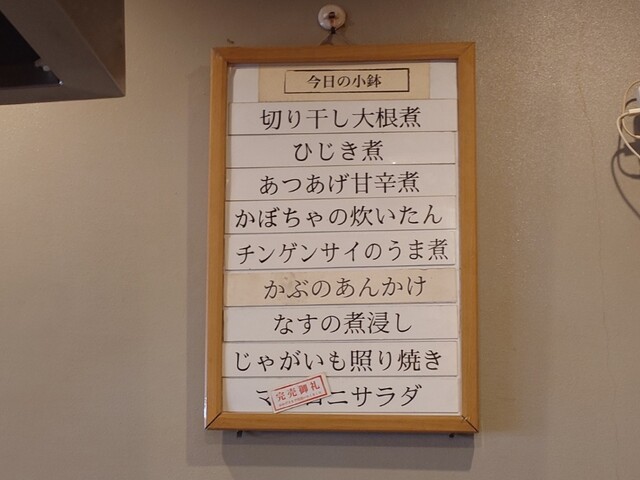 今日の小鉢
切り干し大根煮
ひじき煮
あつあげ甘辛煮
かぼちゃの炊いたん
チンゲンサイのうま煮
かぶのあんかけ
なすの煮浸し
じゃがいも照り焼き
完売御礼
マ ロニサラダ